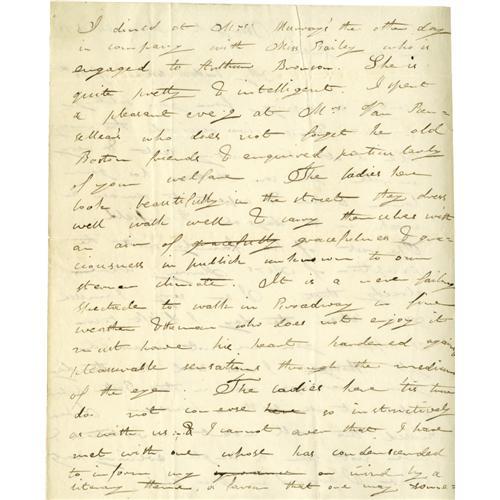 I dined at Mrs. Murray's the other day
in company with Miss Bailey who is
engaged to Arthur Bronson. She is
quite pretty & intelligent. I spent
a pleasant eveg at Mrs. Van Ren-
sellear's who does not forget her old
Boston friends & enquired particularly
of your welfare. The ladies here
look beautifully in the streets they dress
well walk well & carry themselves with
an air of gracefully gracefulness & gra-
ciousness in publick unknown to our
sterner climate. It is a never failing
spectacle to walk in Broadway in fine
weather & the man who does not enjoy it
must have his heart hardened against
pleasurable sensations through the medium
of the eye. The ladies here tis true
do not converse here so instructively
as with us & I cannot aver that I have
met with one whose has condescended
to inform my ignorance or mind by a
literary theme, a favor that one may some-